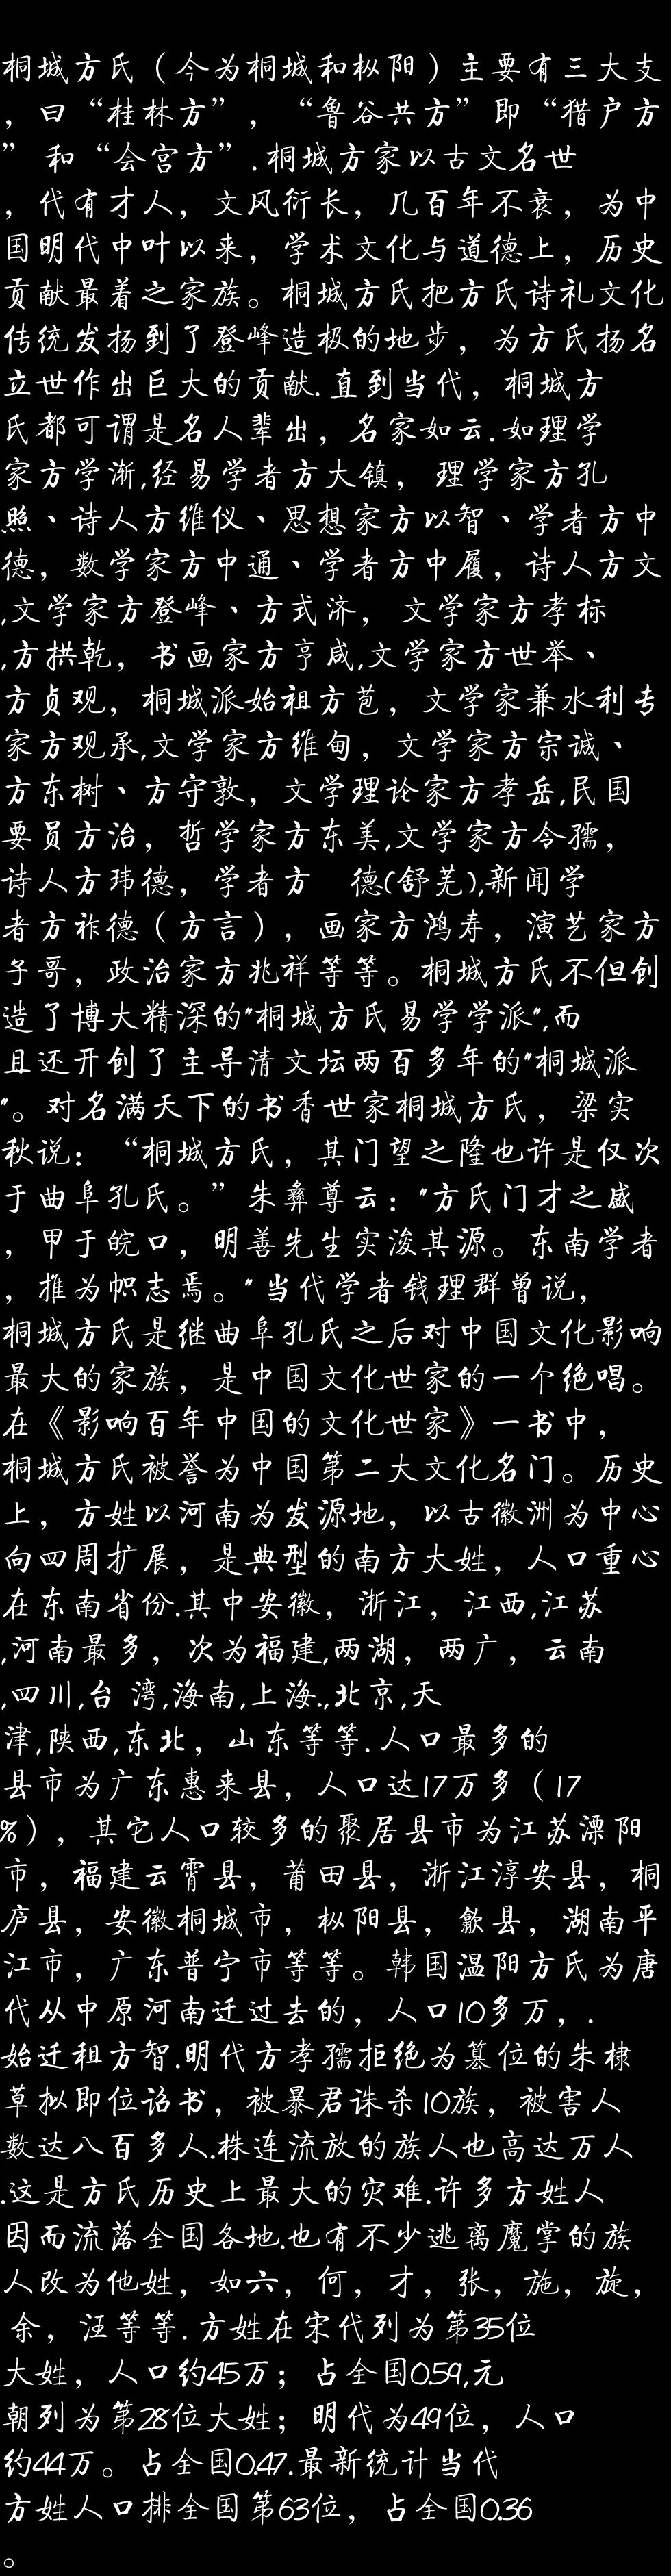 桐城方氏（今为桐城和枞阳）主要有三大支
，曰“桂林方”，“鲁谷共方”即“猎户方
”和“会宫方”.桐城方家以古文名世
，代有才人，文风衍长，几百年不衰，为中
国明代中叶以来，学术文化与道德上，历史
贡献最着之家族。桐城方氏把方氏诗礼文化
传统发扬到了登峰造极的地步，为方氏扬名
立世作出巨大的贡献.直到当代，桐城方
氏都可谓是名人辈出，名家如云.如理学
家方学渐,经易学者方大镇，理学家方孔
照、诗人方维仪、思想家方以智、学者方中
德，数学家方中通、学者方中履，诗人方文
,文学家方登峰、方式济，文学家方孝标
,方拱乾，书画家方亨咸,文学家方世举、
方贞观，桐城派始祖方苞，文学家兼水利专
家方观承,文学家方维甸，文学家方宗诚、
方东树、方守敦，文学理论家方孝岳,民国
要员方治，哲学家方东美,文学家方令孺，
诗人方玮德，学者方 德(舒芜),新闻学
者方祚德（方言），画家方鸿寿，演艺家方
子哥，政治家方兆祥等等。桐城方氏不但创
造了博大精深的"桐城方氏易学学派",而
且还开创了主导清文坛两百多年的"桐城派
"。对名满天下的书香世家桐城方氏，梁实
秋说：“桐城方氏，其门望之隆也许是仅次
于曲阜孔氏。”朱彝尊云："方氏门才之盛
，甲于皖口，明善先生实浚其源。东南学者
，推为帜志焉。"当代学者钱理群曾说，
桐城方氏是继曲阜孔氏之后对中国文化影响
最大的家族，是中国文化世家的一个绝唱。
在《影响百年中国的文化世家》一书中，
桐城方氏被誉为中国第二大文化名门。历史
上，方姓以河南为发源地，以古徽洲为中心
向四周扩展，是典型的南方大姓，人口重心
在东南省份.其中安徽，浙江，江西,江苏
,河南最多，次为福建,两湖，两广，云南
,四川,台 湾,海南,上海.,北京,天
津,陕西,东北，山东等等.人口最多的
县市为广东惠来县，人口达17万多（17
%），其它人口较多的聚居县市为江苏溧阳
市，福建云霄县，莆田县，浙江淳安县，桐
庐县，安徽桐城市，枞阳县，歙县，湖南平
江市，广东普宁市等等。韩国温阳方氏为唐
代从中原河南迁过去的，人口10多万，.
始迁祖方智.明代方孝孺拒绝为篡位的朱棣
草拟即位诏书，被暴君诛杀10族，被害人
数达八百多人.株连流放的族人也高达万人
.这是方氏历史上最大的灾难.许多方姓人
因而流落全国各地.也有不少逃离魔掌的族
人改为他姓，如六，何，才，张，施，旋，
余，汪等等.方姓在宋代列为第35位
大姓，人口约45万；占全国0.59,元
朝列为第28位大姓；明代为49位，人口
约44万。占全国0.47.最新统计当代
方姓人口排全国第63位，占全国0.36
。